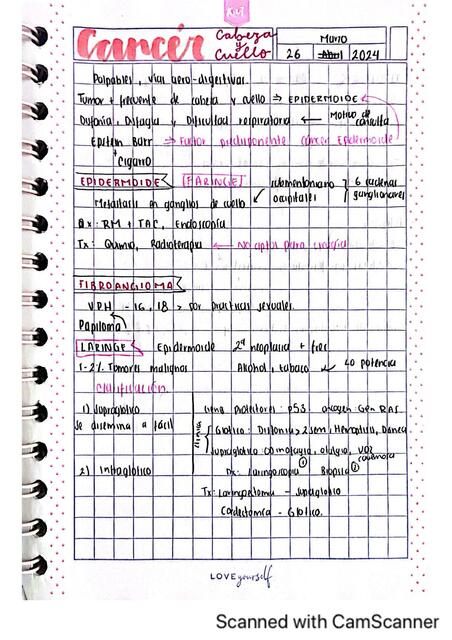 Cancér Cabeza y cuello
Mayo
26 Abril 2024
Palpables, vías aero-digestivas.
Tumor + frecuente de cabeza y cuello ⇒ EPIDERMOIDE
Disfonía, Disfagia y Dificultad respiratoria ← Motivo de consulta
Epstein Barr ⇒ Factor predisponente cáncer Epidermoide
+ cigarro
EPIDERMOIDE FARINGE submentoniano 6 cadenas
Metastasis en ganglios de cuello occipitales ganglionares
Dx: RM + TAC, Endoscopia
Tx: Quimio, Radioterapia ← No aptos para cirugía
FIBROANGIOMA
VPH - 16, 18 > por practicas sexuales.
Papiloma
LARINGE Epidermoide 2ª neoplasia + frec
1-2% Tumores malignos Alcohol, tabaco lo potencia
Clasificación.
1) Supraglotico
Se disemina + fácil
2) Infraglótico
Gena protectores: p53 oncogen Gen RAS
clinica
Glotico: Disfonia > 2 sem, Hemoptisis, Disnea
Supraglotico: odinofagia, otalgia, voz
Dx: Laringoscopia ① Biopsia ②
Tx: Laringectomia - Supraglotico
Cordectomia - Glotico.
LOVE yourself
Scanned with CamScanner